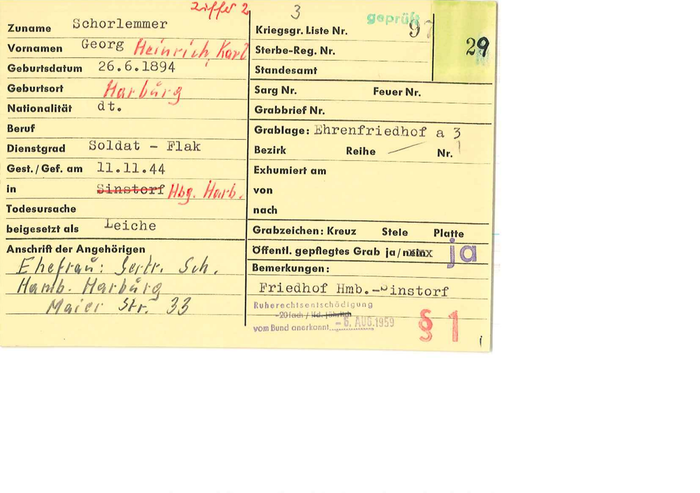 Ziffer 2
Zuname Schorlemmer
Vornamen Georg Heinrich, Karl
Geburtsdatum 26.6.1894
Geburtsort Harburg
Nationalität dt.
Beruf
Dienstgrad Soldat - Flak
Gest./Gef. am 11.11.44
in Sinstorf Hbg. Harb.
Todesursache
beigesetzt als Leiche
Anschrift der Angehörigen
Ehefrau: Gertr. Sch.
Hamb. Harburg
Maier Str. 33
3
geprüft
Kriegsgr. Liste Nr. 97
29
Sterbe-Reg. Nr.
Standesamt
Sarg Nr. Feuer Nr.
Grabbrief Nr.
Grablage: Ehrenfriedhof a 3
Bezirk Reihe Nr.
Exhumiert am
von
nach
Grabzeichen: Kreuz Stele Platte
Öffentl. gepflegtes Grab ja/nein ja
Bemerkungen:
Friedhof Hmb.-Sinstorf
Ruherechtsentschädigung
-20fach / lfd. jährlich
vom Bund anerkannt -6. AUG. 1959
§ 1